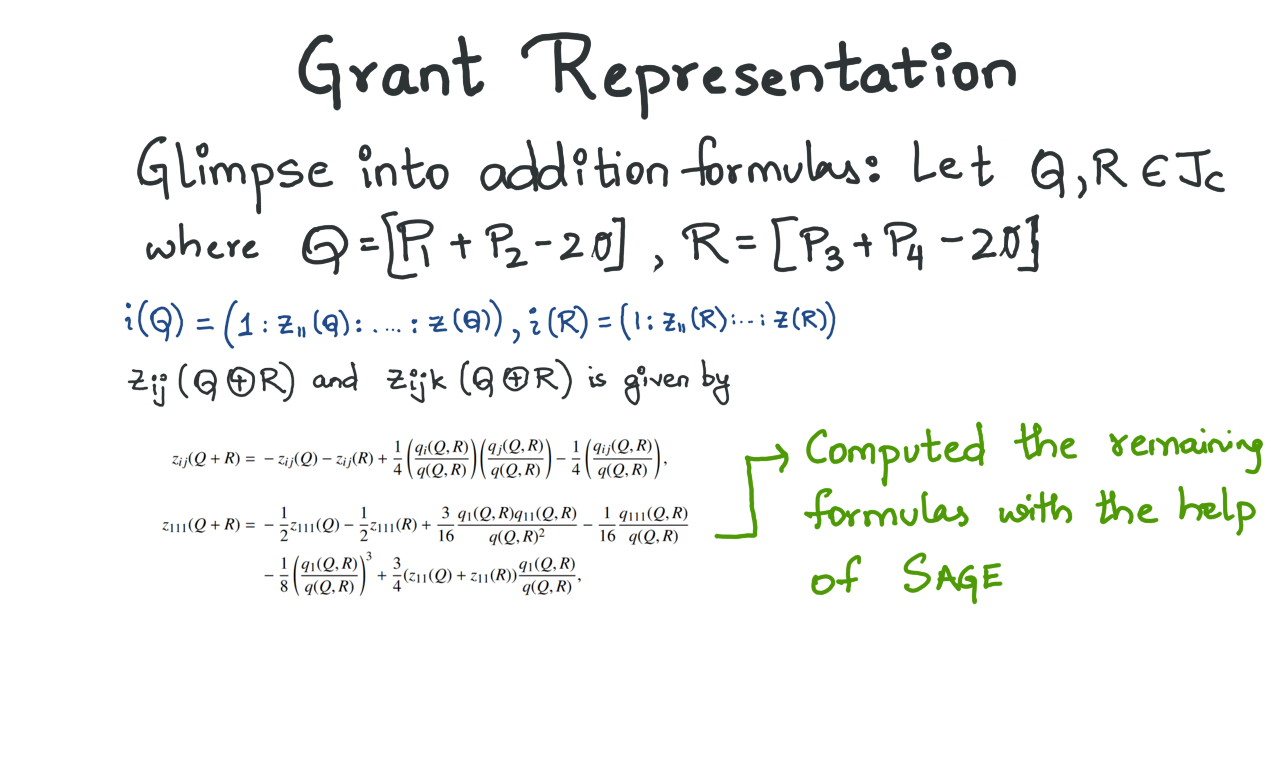 Grant Representation
Glimpse into addition formulas: Let Q, R ∈ J_C
where Q = [P₁ + P₂ - 2∅], R = [P₃ + P₄ - 2∅]
i(Q) = (1 : z₁₁(Q) : .... : z(Q)), i(R) = (1 : z₁₁(R) : ... : z(R))
z_ij (Q ⊕ R) and z_ijk (Q ⊕ R) is given by
z_ij(Q + R) = - z_ij(Q) - z_ij(R) + 1/4 (q_i(Q, R)/q(Q, R)) (q_j(Q, R)/q(Q, R)) - 1/4 (q_ij(Q, R)/q(Q, R)),
z₁₁₁(Q + R) = - 1/2 z₁₁₁(Q) - 1/2 z₁₁₁(R) + 3/16 q₁(Q, R)q₁₁(Q, R)/q(Q, R)² - 1/16 q₁₁₁(Q, R)/q(Q, R)
- 1/8 (q₁(Q, R)/q(Q, R))³ + 3/4 (z₁₁(Q) + z₁₁(R)) q₁(Q, R)/q(Q, R),
→ Computed the remaining
formulas with the help
of SAGE